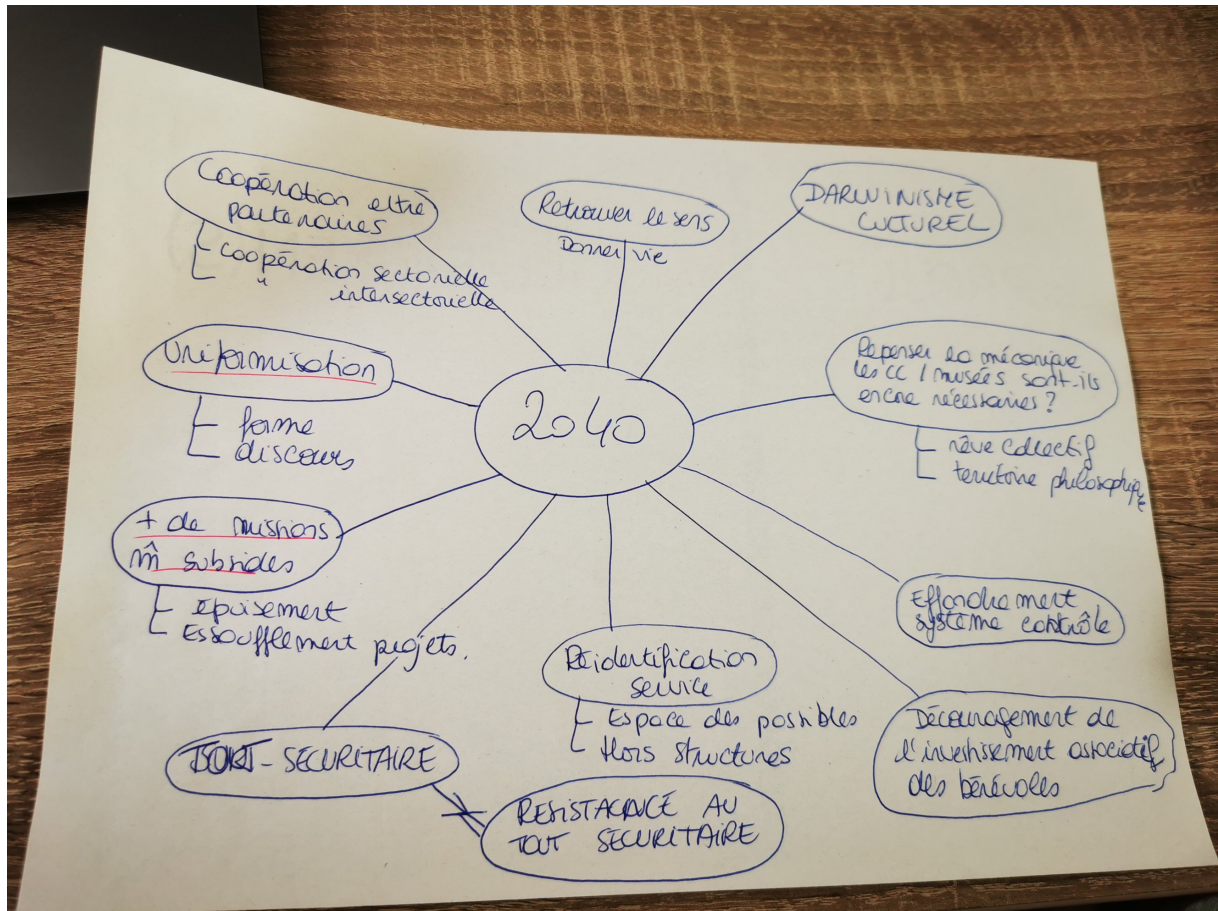 Coopération entre
partenaires
coopération sectorielle
" intersectorielle
Retrouver le sens
Donner vie
DARWINISME
CULTUREL
Uniformisation
forme
discours
2040
Repenser la mécanique
les CC / musées sont-ils
encore nécessaires ?
rêve collectif
territoire philosophique
+ de missions
m̂ subsides
épuisement
Essoufflement projets.
Effondrement
système contrôle
Réidentification
service
Espace des possibles
Hors structures
Découragement de
l'investissement associatif
des bénévoles
TOUT-SECURITAIRE
RESISTANCE AU
TOUT SECURITAIRE